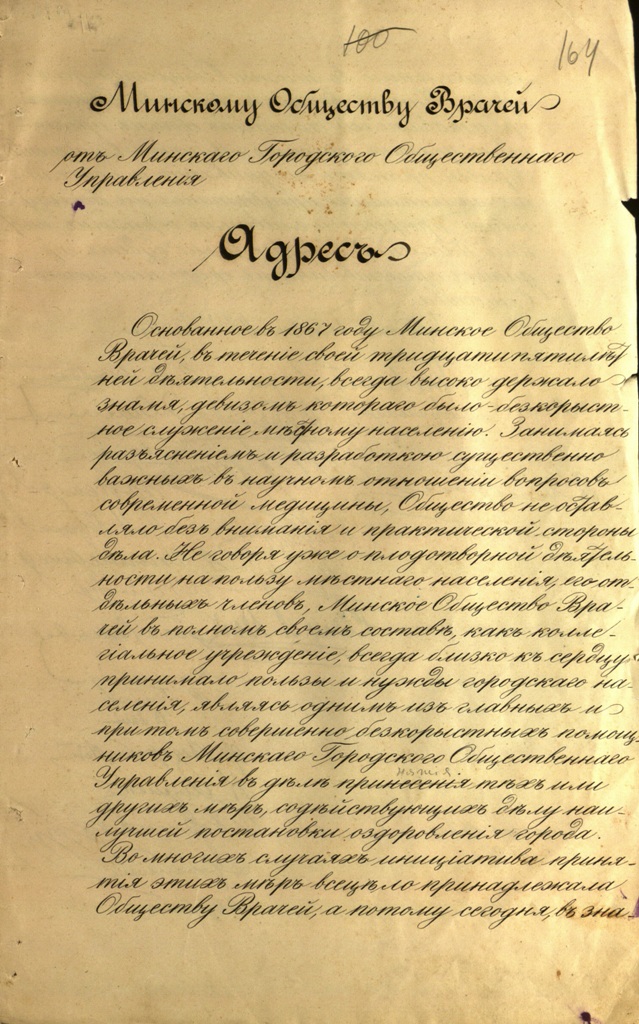 100
164
Минскому Обществу Врачей
отъ Минскаго Городского Общественнаго
Управленія
Адресъ
Основанное въ 1867 году Минское Общество
Врачей, въ теченіе своей тридцатипятилѣт
ней дѣятельности, всегда высоко держало
знамя, девизомъ котораго было-безкорыст-
ное служеніе мѣстному населенію. Занимаясь
разъясненіемъ и разработкою существенно
важныхъ въ научномъ отношеніи вопросовъ
современной медицины, Общество не остав-
ляло безъ вниманія и практической стороны
дѣла. Не говоря уже о плодотворной дѣятель-
ности на пользу мѣстнаго населенія, его от-
дѣльныхъ членовъ, Минское Общество Вра-
чей въ полномъ своемъ составѣ, какъ колле-
гіальное учрежденіе, всегда близко къ сердцу
принимало пользы и нужды городскаго на-
селенія, являясь однимъ изъ главныхъ и
при томъ совершенно безкорыстныхъ помощ-
никовъ Минскаго Городского Общественнаго
Управленія въ дѣлѣ принесенія тѣхъ или
нятія
другихъ мѣръ, содѣйствующихъ дѣлу наи-
лучшей постановки оздоровленія города.
Во многихъ случаяхъ иниціатива приня-
тія этихъ мѣръ всецѣло принадлежала
Обществу Врачей, а потому сегодня, въ зна-